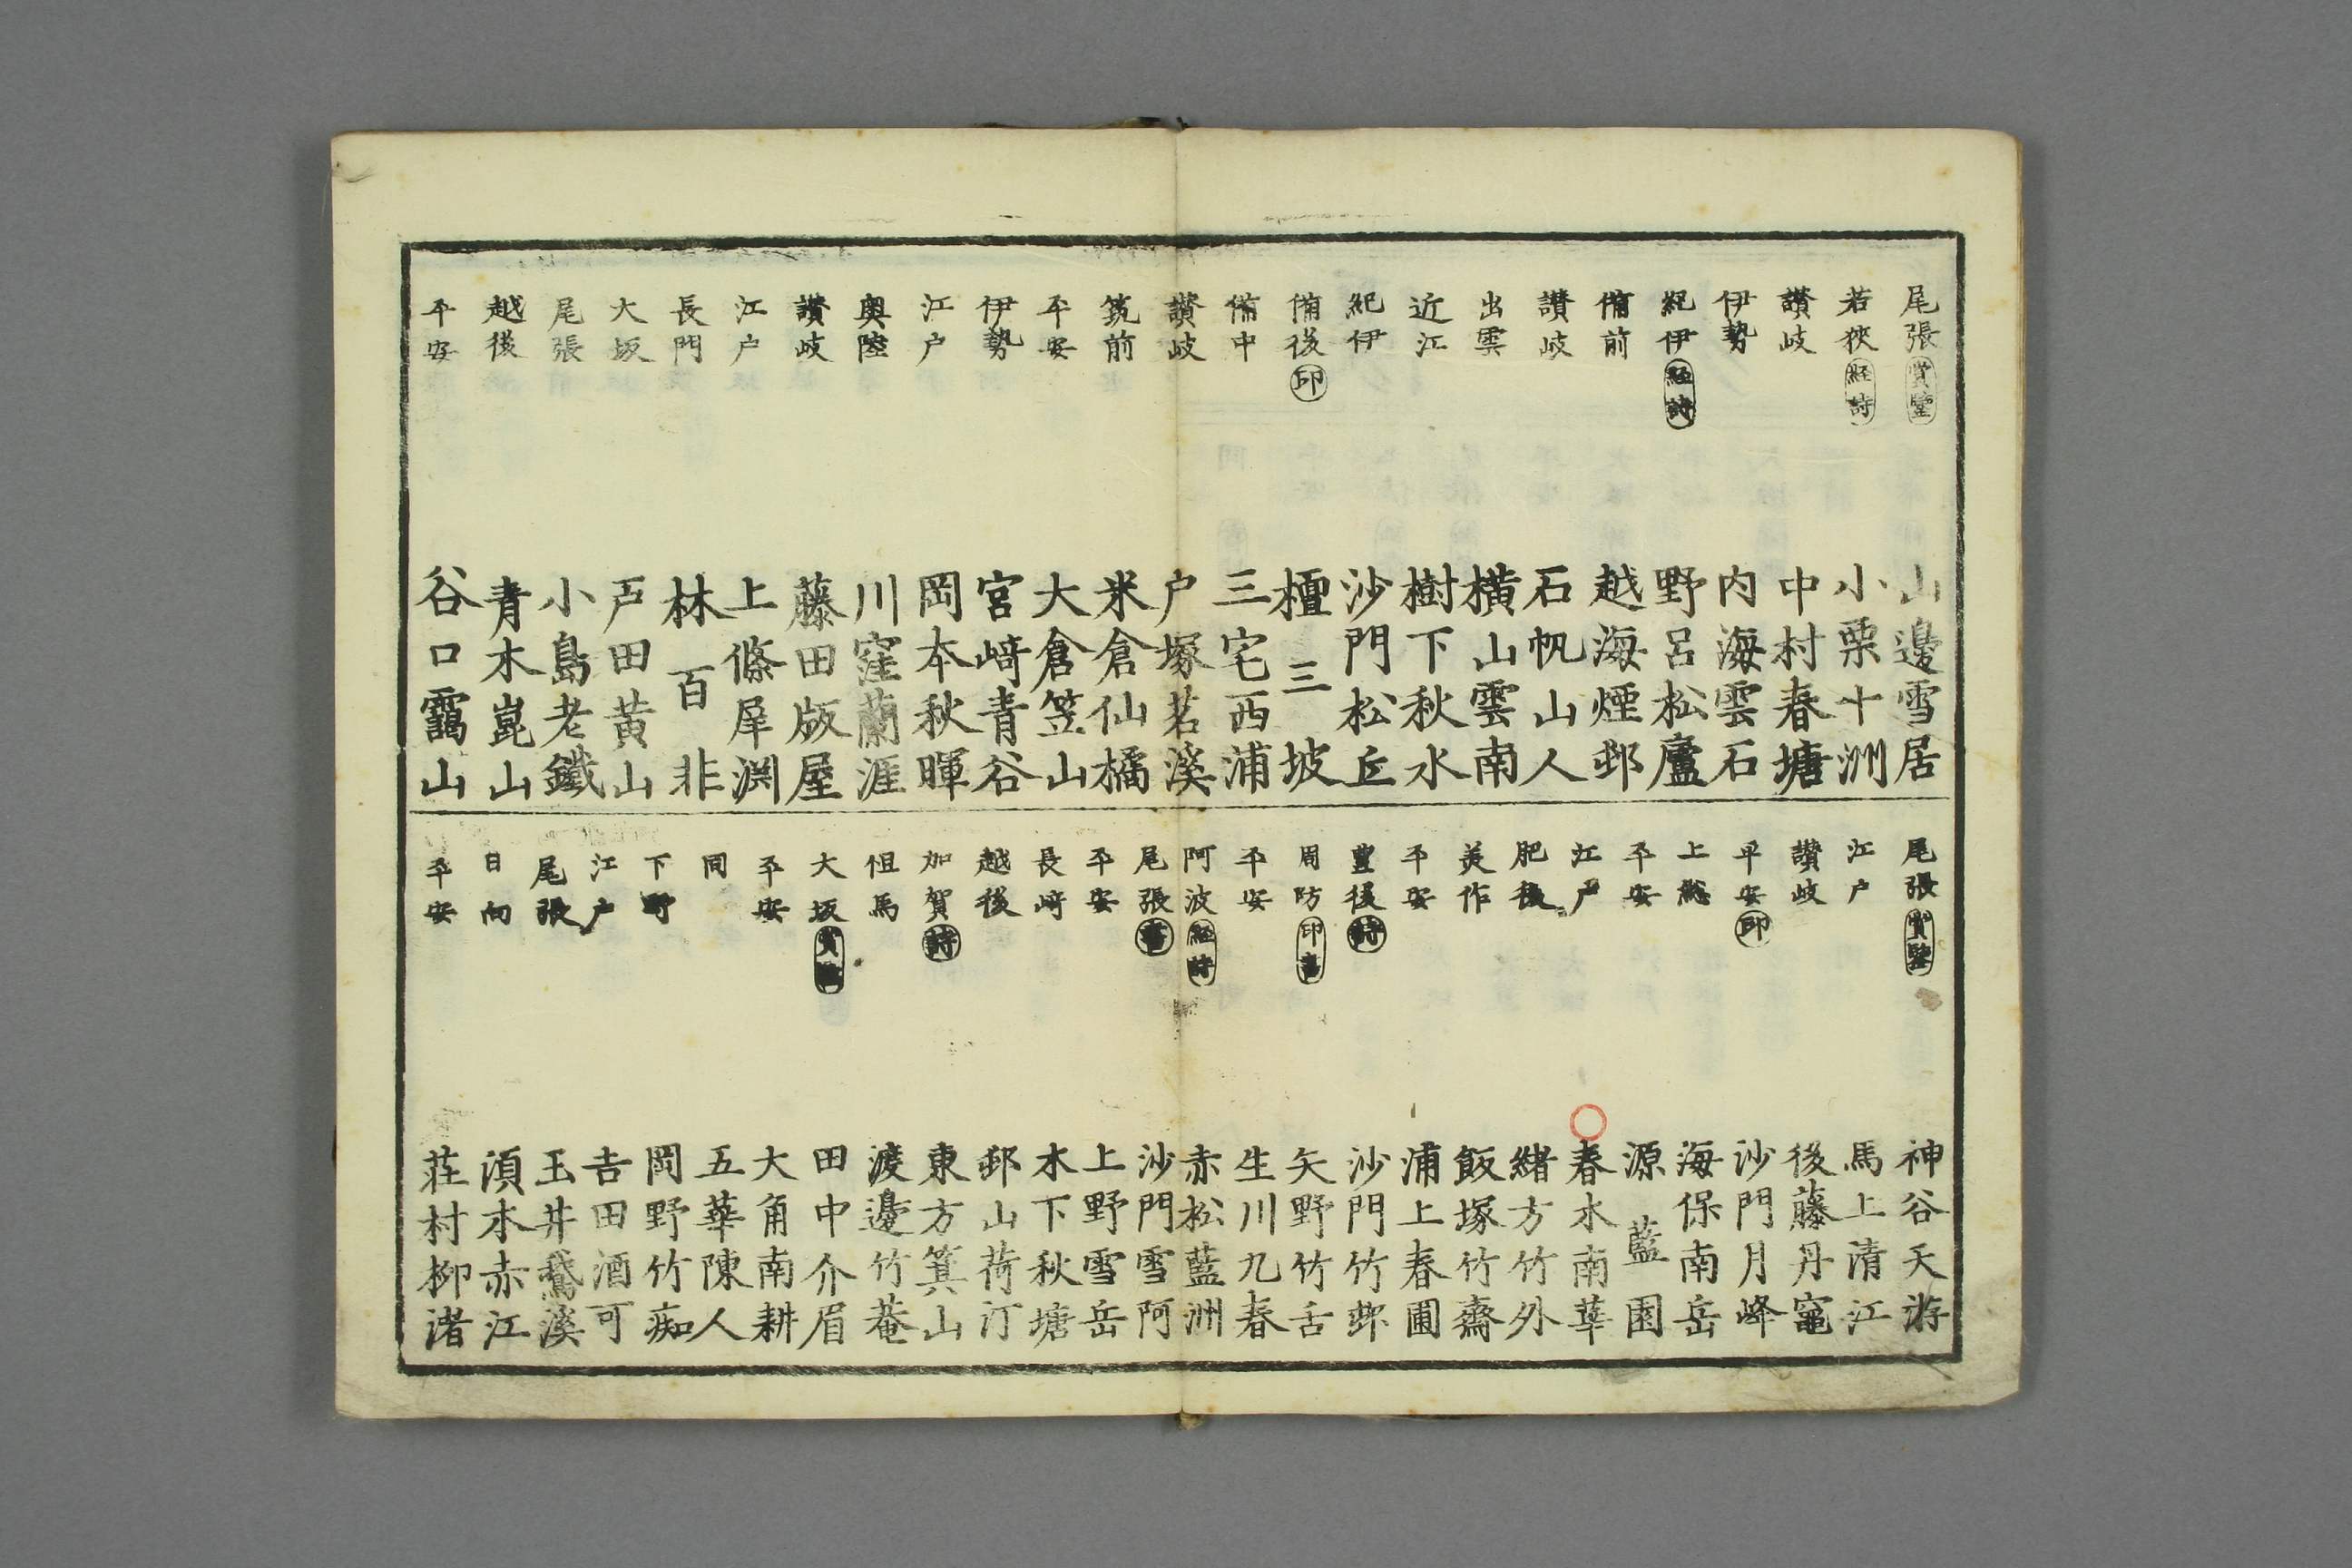 尾張 賞鑒 山邊雪居
若狹 経詩 小栗十洲
讃岐 中村春塘
伊勢 内海雲石
紀伊 経詩 野呂松廬
備前 越海煙邨
讃岐 石帆山人
出雲 横山雲南
近江 樹下秋水
紀伊 沙門松丘
備後 印 檀三坡
備中 三宅西浦
讃岐 户塚茗溪
筑前 米倉仙橘
平安 大倉笠山
伊勢 宮﨑青谷
江户 岡本秋暉
奥陸 川窪蘭涯
讃岐 藤田版屋
江户 上條犀渕
長門 林百非
大坂 戸田黄山
尾張 小島老鐵
越後 青木崑山
平安 谷口靄山
尾張 賞鑒 神谷天游
江户 馬上清江
讃岐 後藤丹竈
平安 印 沙門月峰
上総 海保南岳
平安 源藍園
江户 春木南華
肥後 緒方竹外
美作 飯塚竹齋
平安 浦上春圃
豊後 詩 沙門竹邨
周防 印書 矢野竹舌
平安 生川九春
阿波 経詩 赤松藍洲
尾張 書 沙門雪阿
平安 上野雪岳
長﨑 木下秋塘
越後 邨山荷汀
加賀 詩 東方箕山
但馬 渡邊竹菴
大坂 賞鑒 田中介眉
平安 大角南耕
同 五華陳人
下野 岡野竹痴
江户 吉田酒可
尾張 玉井鵞溪
日向 湏木赤江
平安 莊村柳渚